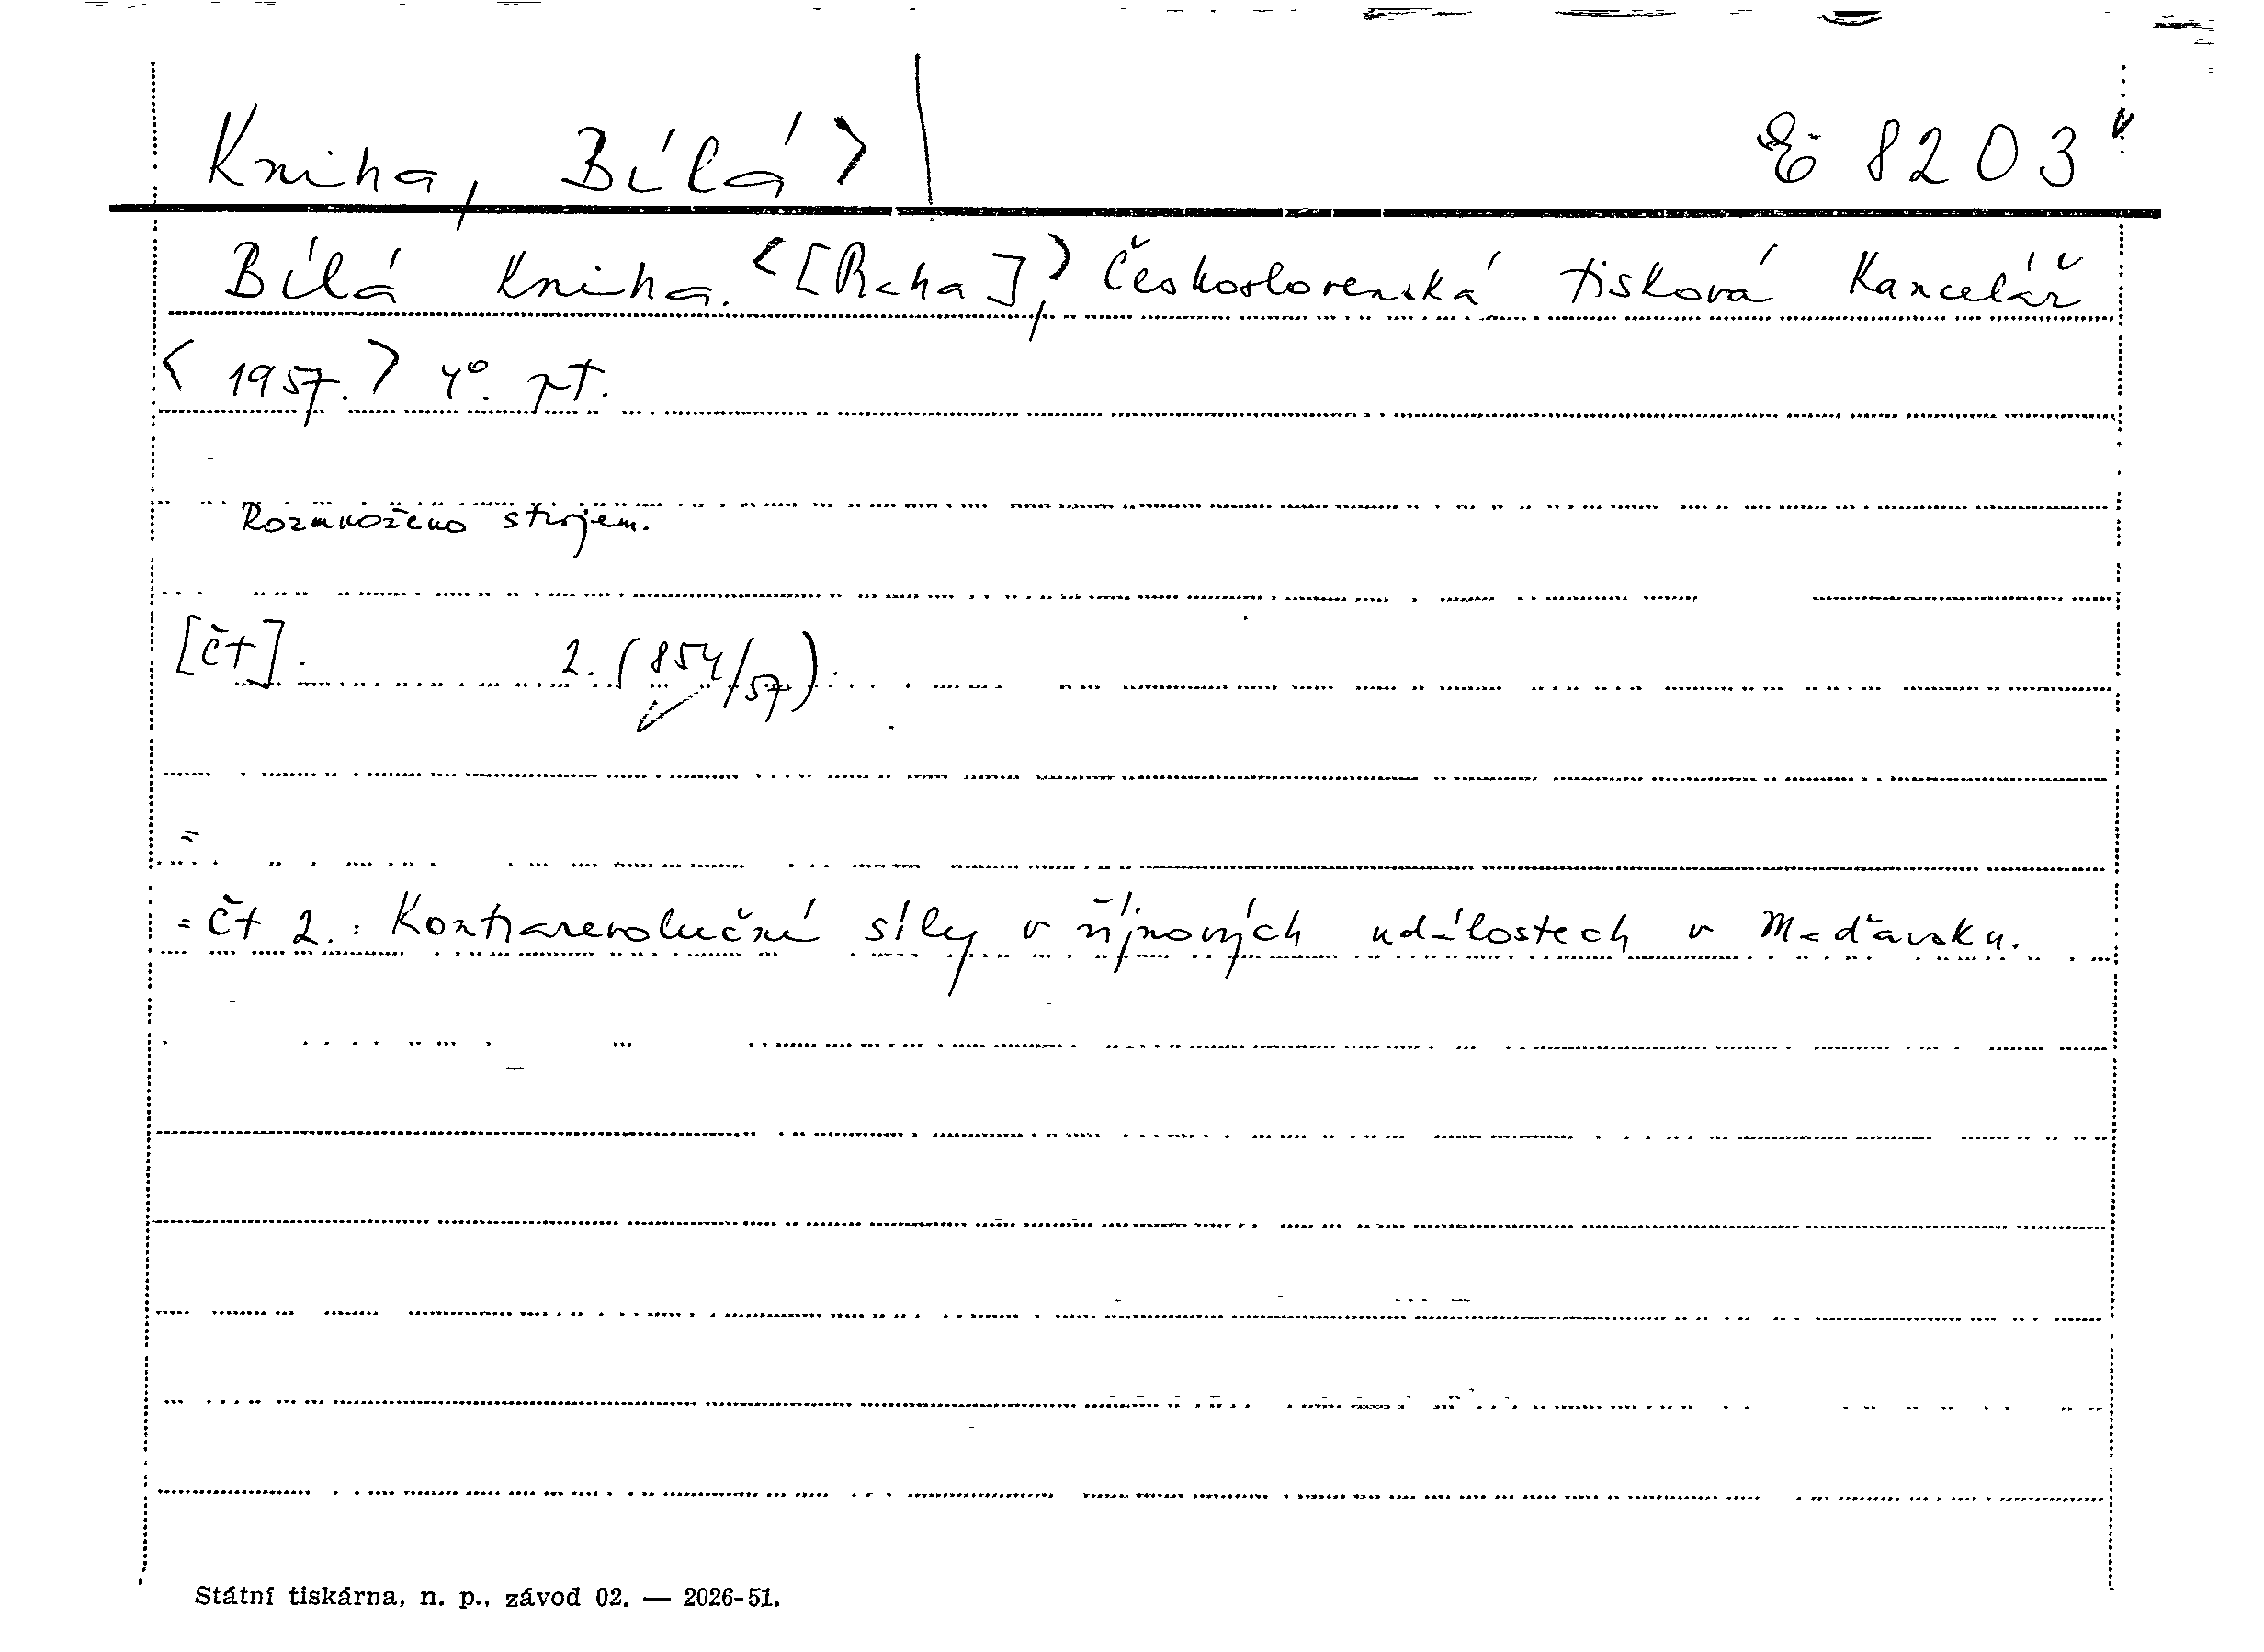 Kniha, Bílá > | E 8203
Bílá kniha. <[Praha],> Československá tisková kancelář
< 1957. > 4°.
Rozmnoženo strojem.
[čt]. 2. (854/57).
=
= čt 2.: Kontrarevoluční síly v říjnových událostech v Maďarsku.
Státní tiskárna, n. p., závod 02. — 2026-51.